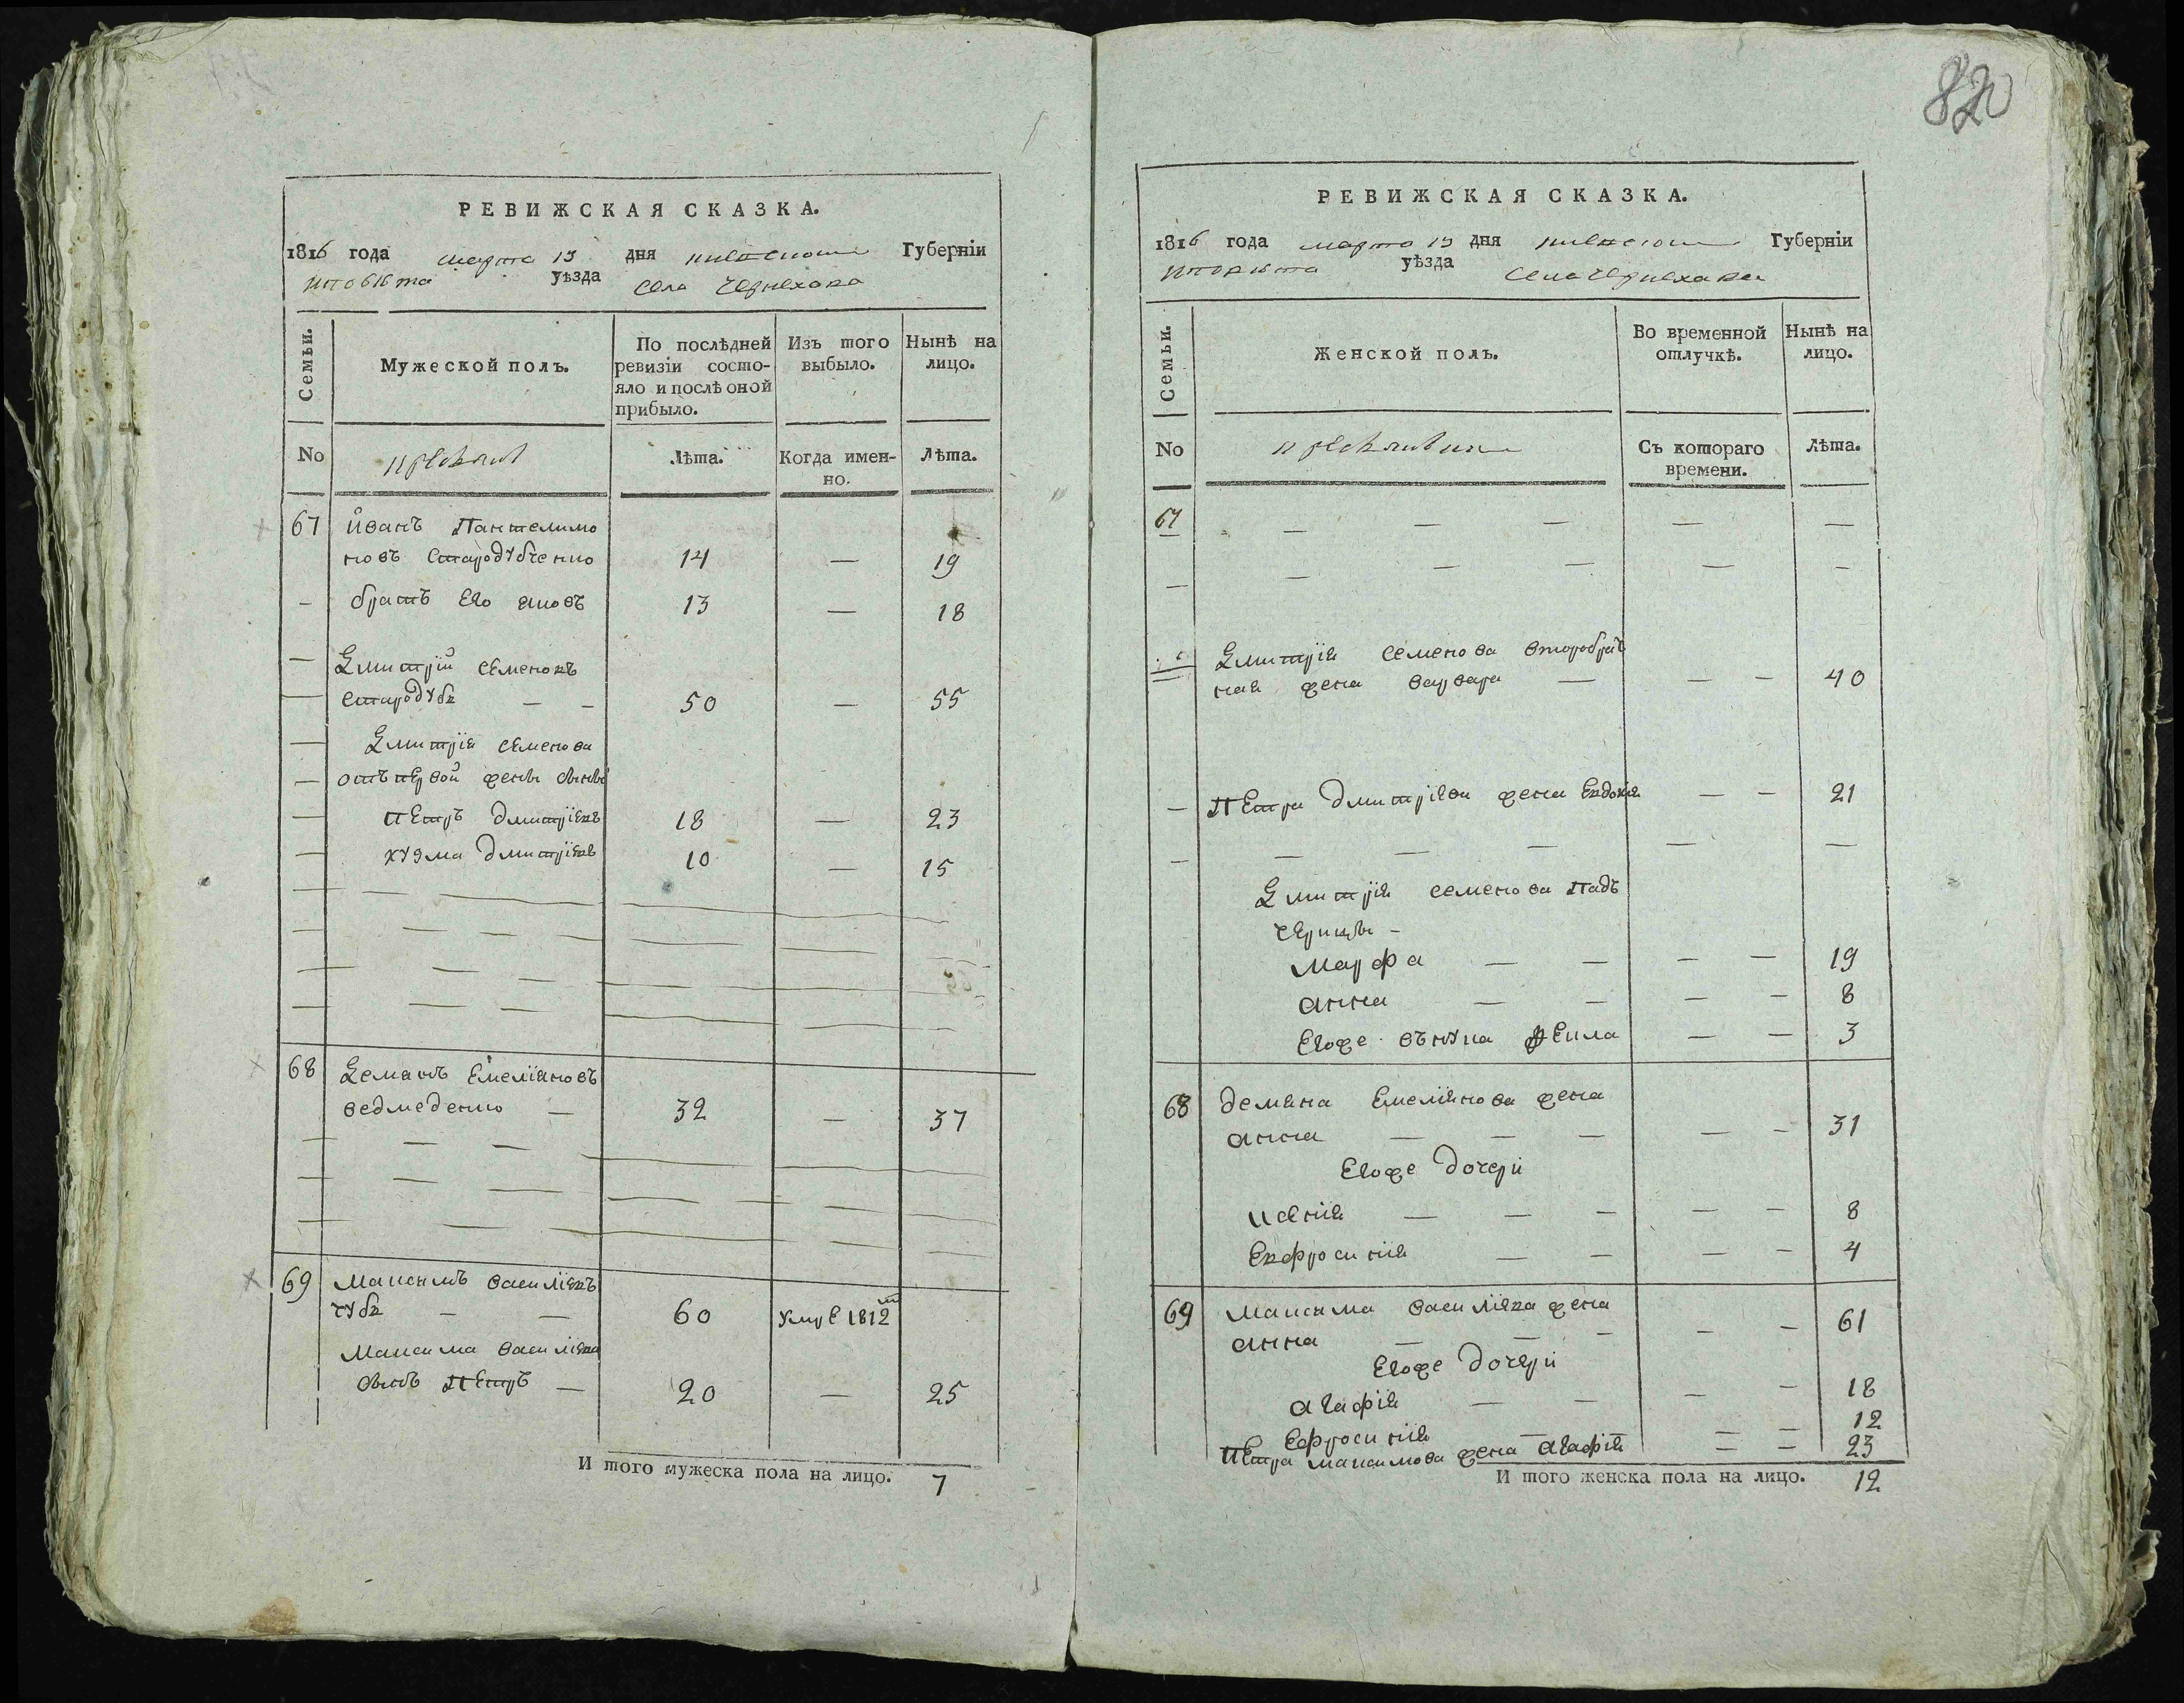 820
РЕВИЖСКАЯ СКАЗКА.
1816 года марта 13 дня Губерніи
уѣзда села Чернехова
Семьи.
Мужеской полъ.
По послѣдней ревизіи состо-
яло и послѣ оной
прибыло.
Изъ того
выбыло.
Нынѣ на
лицо.
No
Лѣта.
Когда имен-
но.
Лѣта.
67 Иванъ Пантелимо
новъ Стародубченко 14 — 19
— братъ Его яковъ 13 — 18
— Дмитрій семеновъ
— стародубъ — — 50 — 55
— Дмитрія семенова
— отъ первой жены сыны
— Петръ дмитріевъ 18 — 23
— кузма дмитріевъ 10 — 15
68 Демянъ Емеліановъ
ведмеденко — 32 — 37
69 Максимъ василіевъ
чубъ — — 60 умре 1812
Максима василіева
сынъ Петръ — 20 — 25
И того мужеска пола на лицо. 7
РЕВИЖСКАЯ СКАЗКА.
1816 года марта 13 дня Губерніи
уѣзда Села Чернехова
Семьи.
Женской полъ.
Во временной
отлучкѣ.
Нынѣ на
лицо.
No
Съ котораго
времени.
Лѣта.
67 — — — — —
— — — — — —
Дмитрія семенова второбрач
ная жена варвара — — — 40
— Петра дмитріева жена Евдокія — — 21
— — — — — —
Дмитрія семенова Пад
черицы —
Марфа — — — — 19
анна — — — — 8
Егоже внука фекла — — 3
68 демяна Емеліянова жена
анна — — — — — 31
Егоже дочери
ксенія — — — — — 8
Евфросинія — — — — 4
69 максима василіева жена
анна — — — — — 61
Егоже дочери
агафія — — — — 18
Ефросинія — — — 12
Петра максимова жена агафія — — 23
И того женска пола на лицо. 12